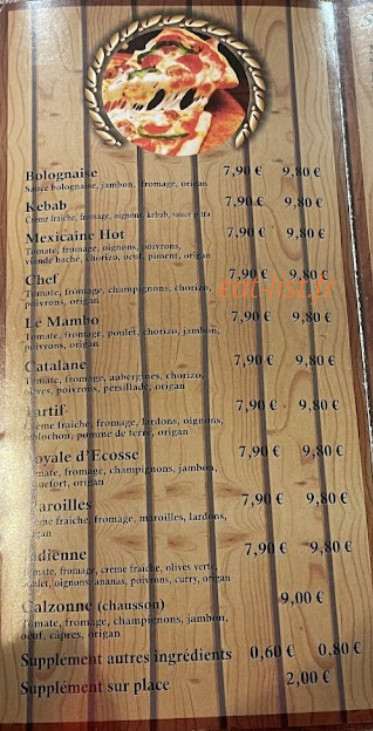 Bolognaise 7,90 € 9,80 €
Sauce bolognaise, jambon, fromage, origan
Kebab 7,90 € 9,80 €
Crème fraiche, fromage, oignons, kebab, sauce pitta
Mexicaine Hot 7,90 € 9,80 €
Tomate, fromage, oignons, poivrons,
viande haché, chorizo, oeuf, piment, origan
Chef 7,90 € 9,80 €
Tomate, fromage, champignons, chorizo,
poivrons, origan
eat-list.fr
Le Mambo 7,90 € 9,80 €
Tomate, fromage, poulet, chorizo, jambon,
poivrons, origan
Catalane 7,90 € 9,80 €
Tomate, fromage, aubergines, chorizo,
olives, poivrons, persillade, origan
Tartif 7,90 € 9,80 €
fraiche, fromage, lardons, oignons,
blochon, pomme de terre, origan
oyale d'Ecosse 7,90 € 9,80 €
mate, fromage, champignons, jambon,
quefort, origan
aroilles 7,90 € 9,80 €
me fraiche, fromage, maroilles, lardons,
gan
dienne 7,90 € 9,80 €
mate, fromage, crème fraiche, olives verte,
ulet, oignons, ananas, poivrons, curry, origan
Calzonne (chausson) 9,00 €
Tomate, fromage, champignons, jambon,
oeuf, câpres, origan
Supplément autres ingrédients 0,60 € 0,80 €
Supplément sur place 2,00 €